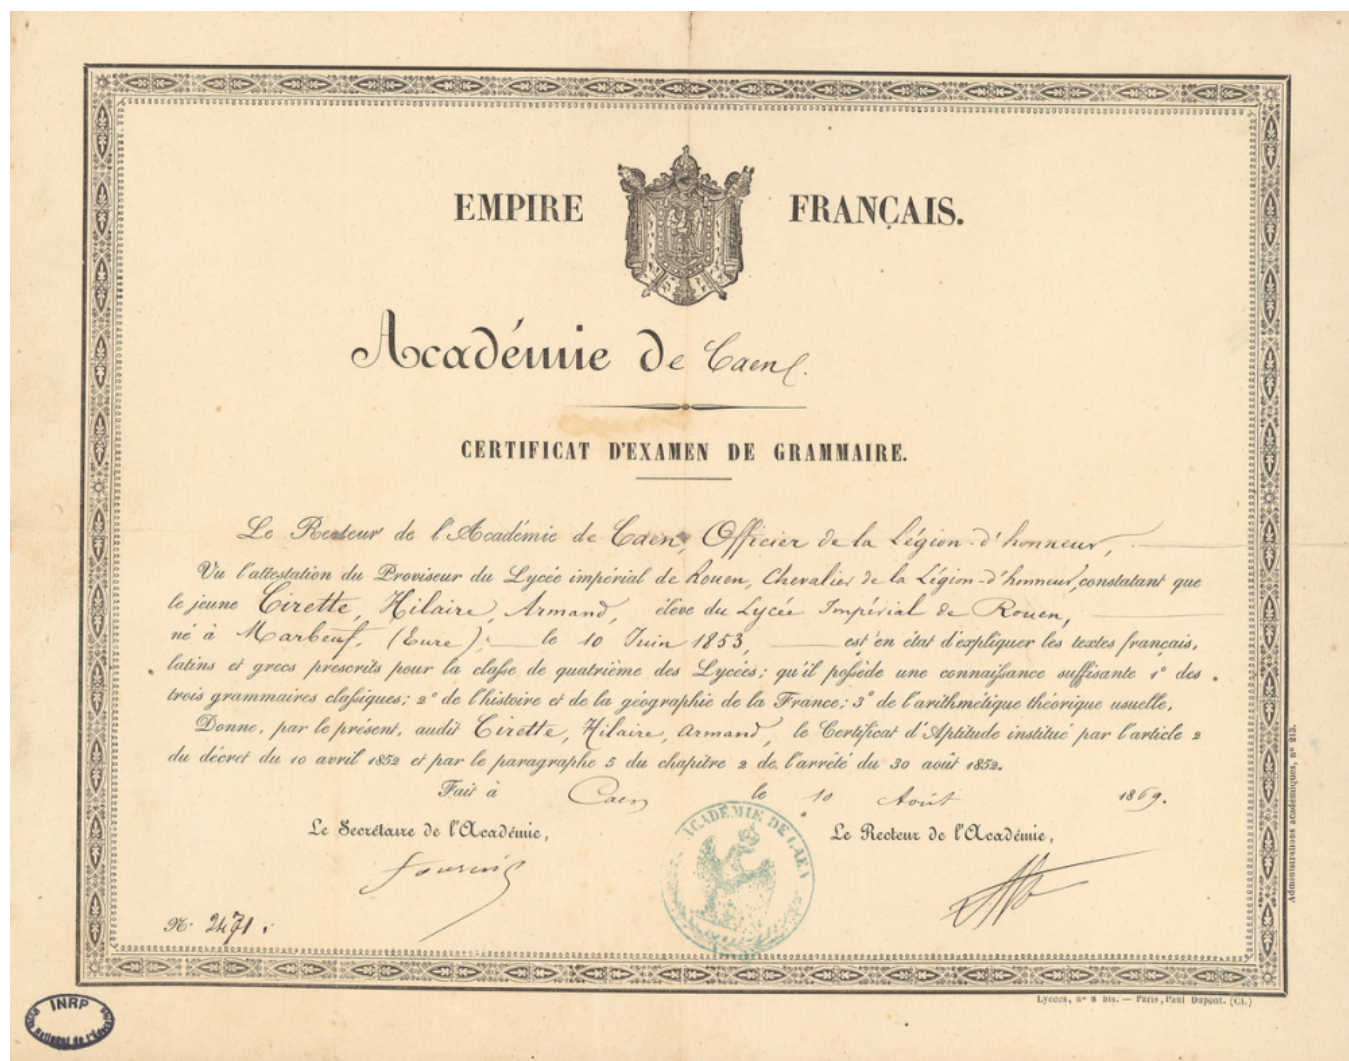 EMPIRE FRANÇAIS.
Académie de Caen.
CERTIFICAT D'EXAMEN DE GRAMMAIRE.
Le Recteur de l'Académie de Caen, Officier de la Légion-d'honneur,
Vu l'attestation du Proviseur du Lycée impérial de Rouen, Chevalier de la Légion-d'honneur, constatant que
le jeune Cirette, Hilaire, Armand, élève du Lycée Impérial de Rouen,
né à Marbeuf, (Eure), le 10 Juin 1853, est en état d'expliquer les textes français,
latins et grecs prescrits pour la classe de quatrième des Lycées; qu'il possède une connaissance suffisante 1º des
trois grammaires classiques; 2º de l'histoire et de la géographie de la France; 3º de l'arithmétique théorique usuelle,
Donne, par le présent, audit Cirette, Hilaire, Armand, le Certificat d'Aptitude institué par l'article 2
du décret du 10 avril 1852 et par le paragraphe 5 du chapitre 2 de l'arrêté du 30 août 1852.
Fait à Caen le 10 Août 1869.
Le Secrétaire de l'Académie, Le Recteur de l'Académie,
ACADÉMIE DE CAEN
Nº 2471.
Administrations académiques, nº 213.
Lycées, nº 8 bis. — Paris, Paul Dupont. (Cl.)
INRP
National de l'Educ